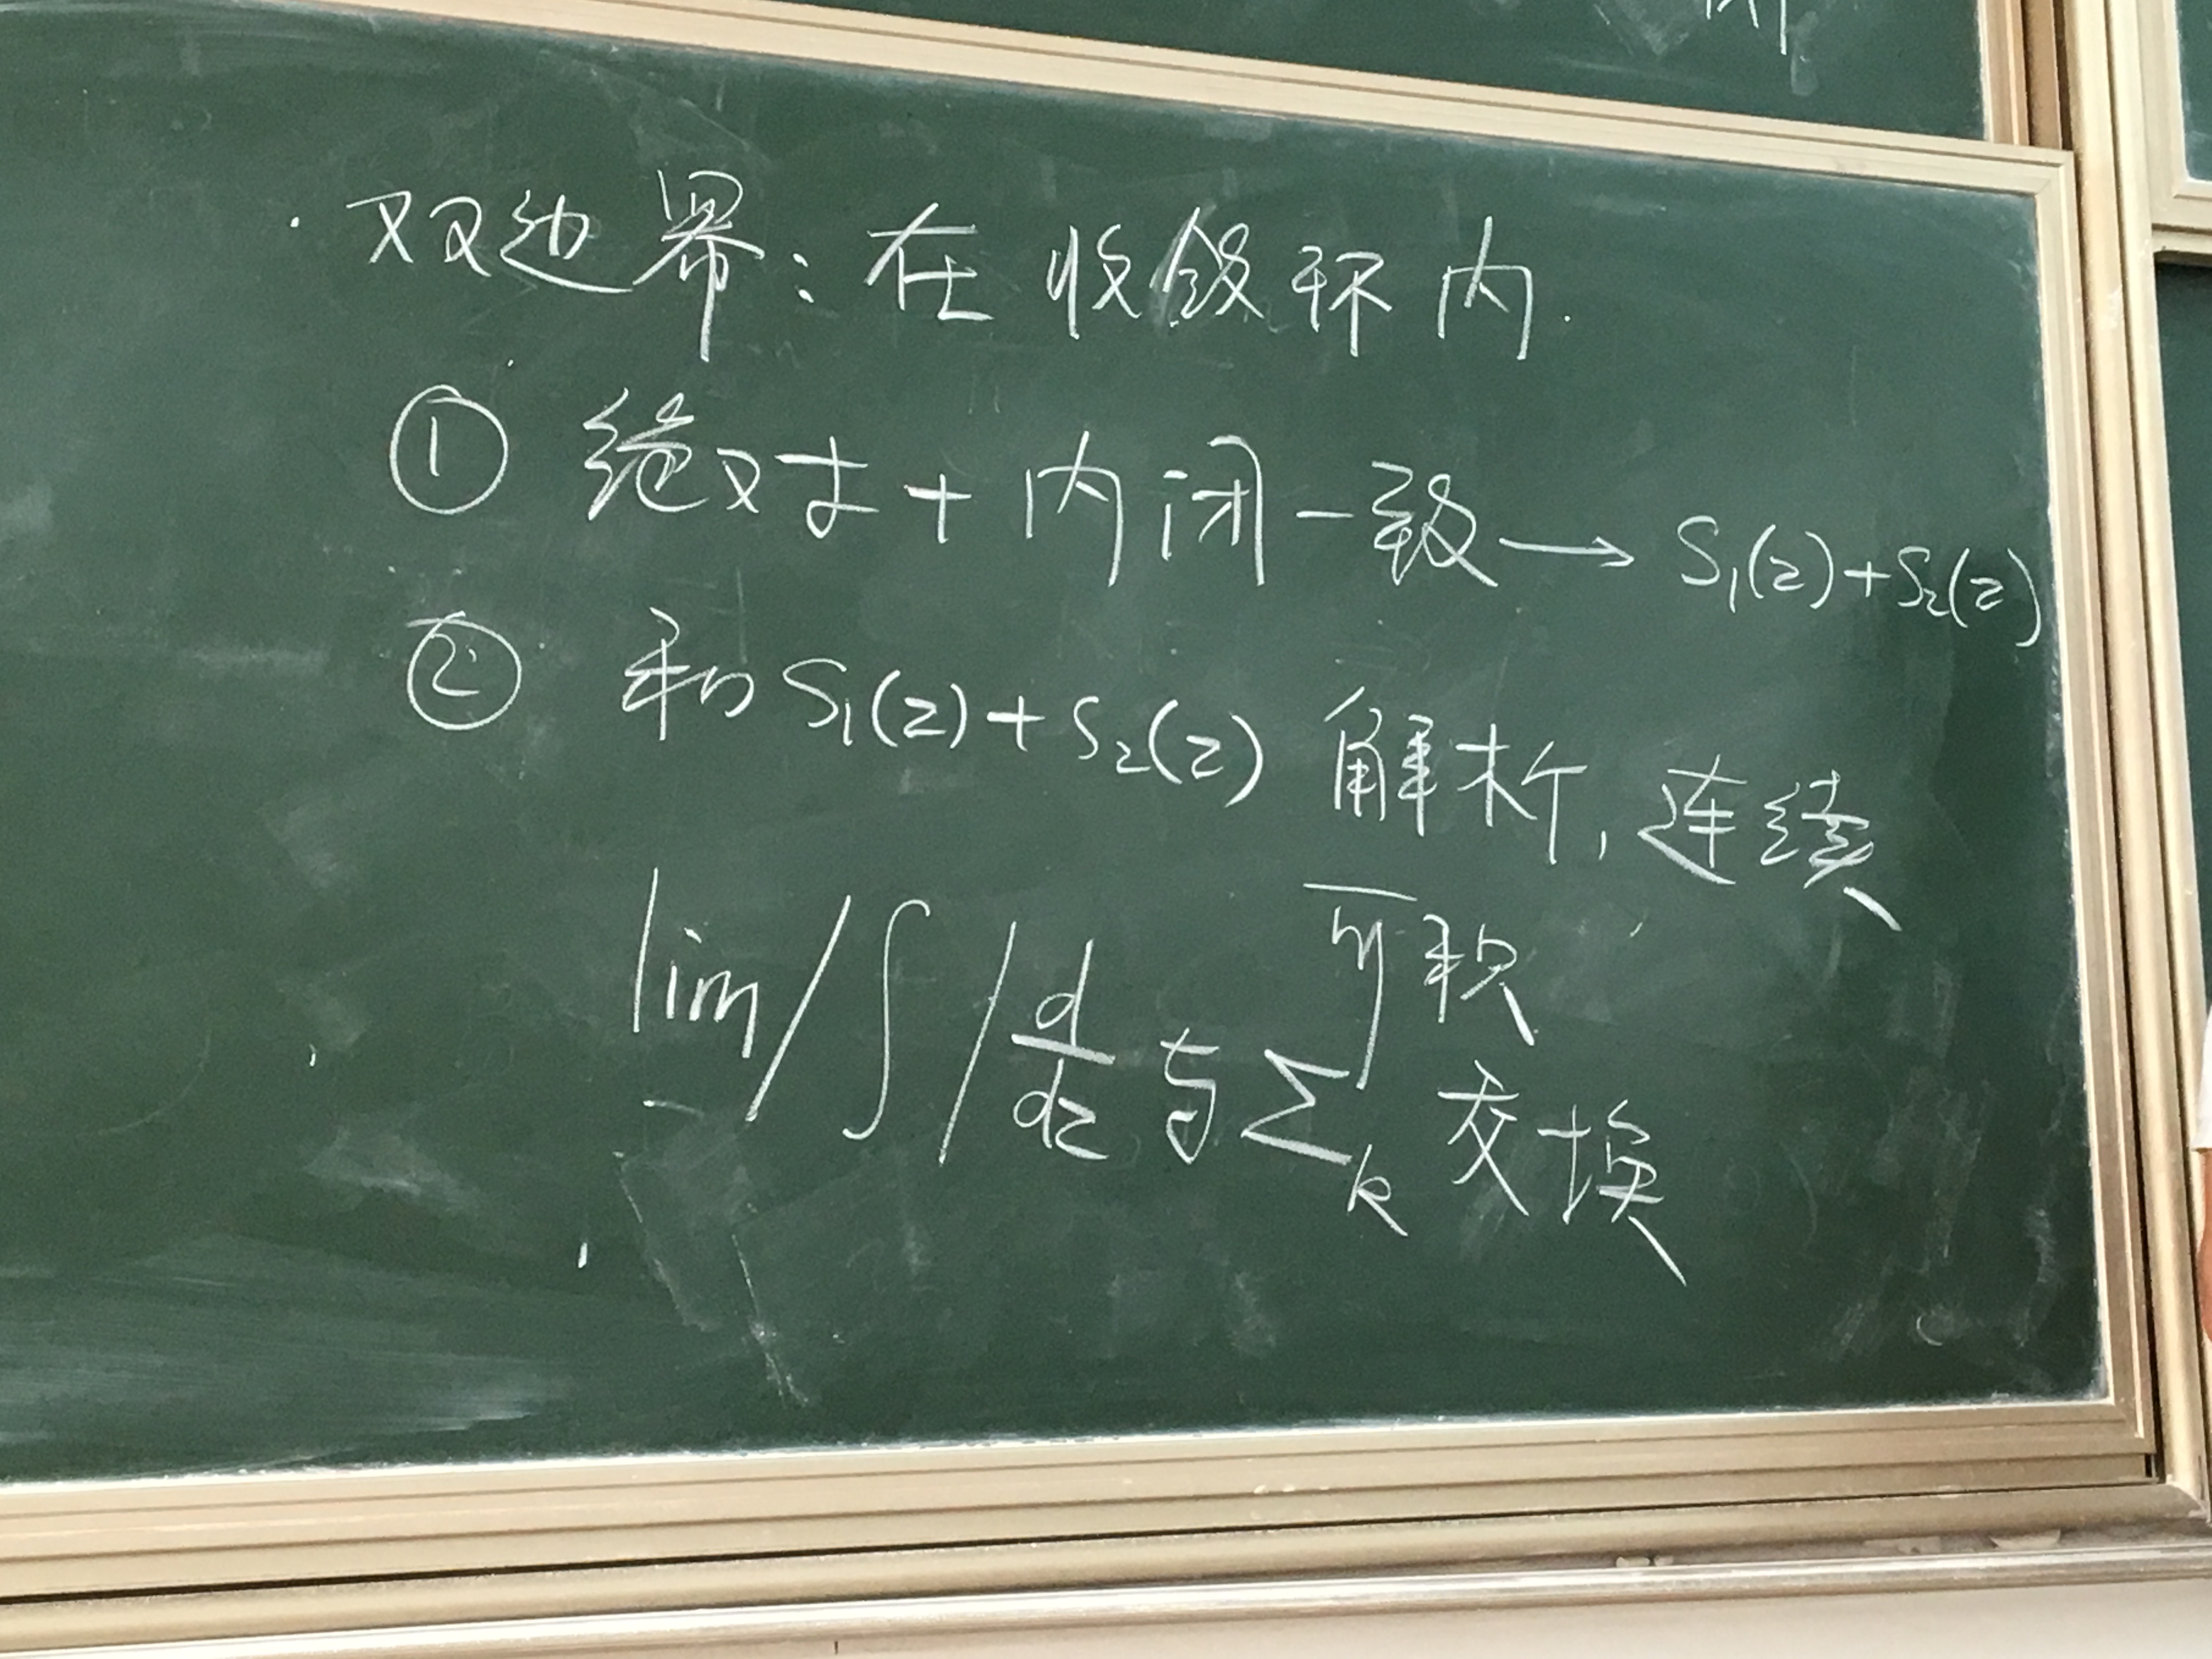 · 双边幂：在收敛环内.
① 绝对+内闭一致→S₁(z)+S₂(z)
② 和S₁(z)+S₂(z)解析，连续
可积
lim/∫/d/dz与∑ₖ交换